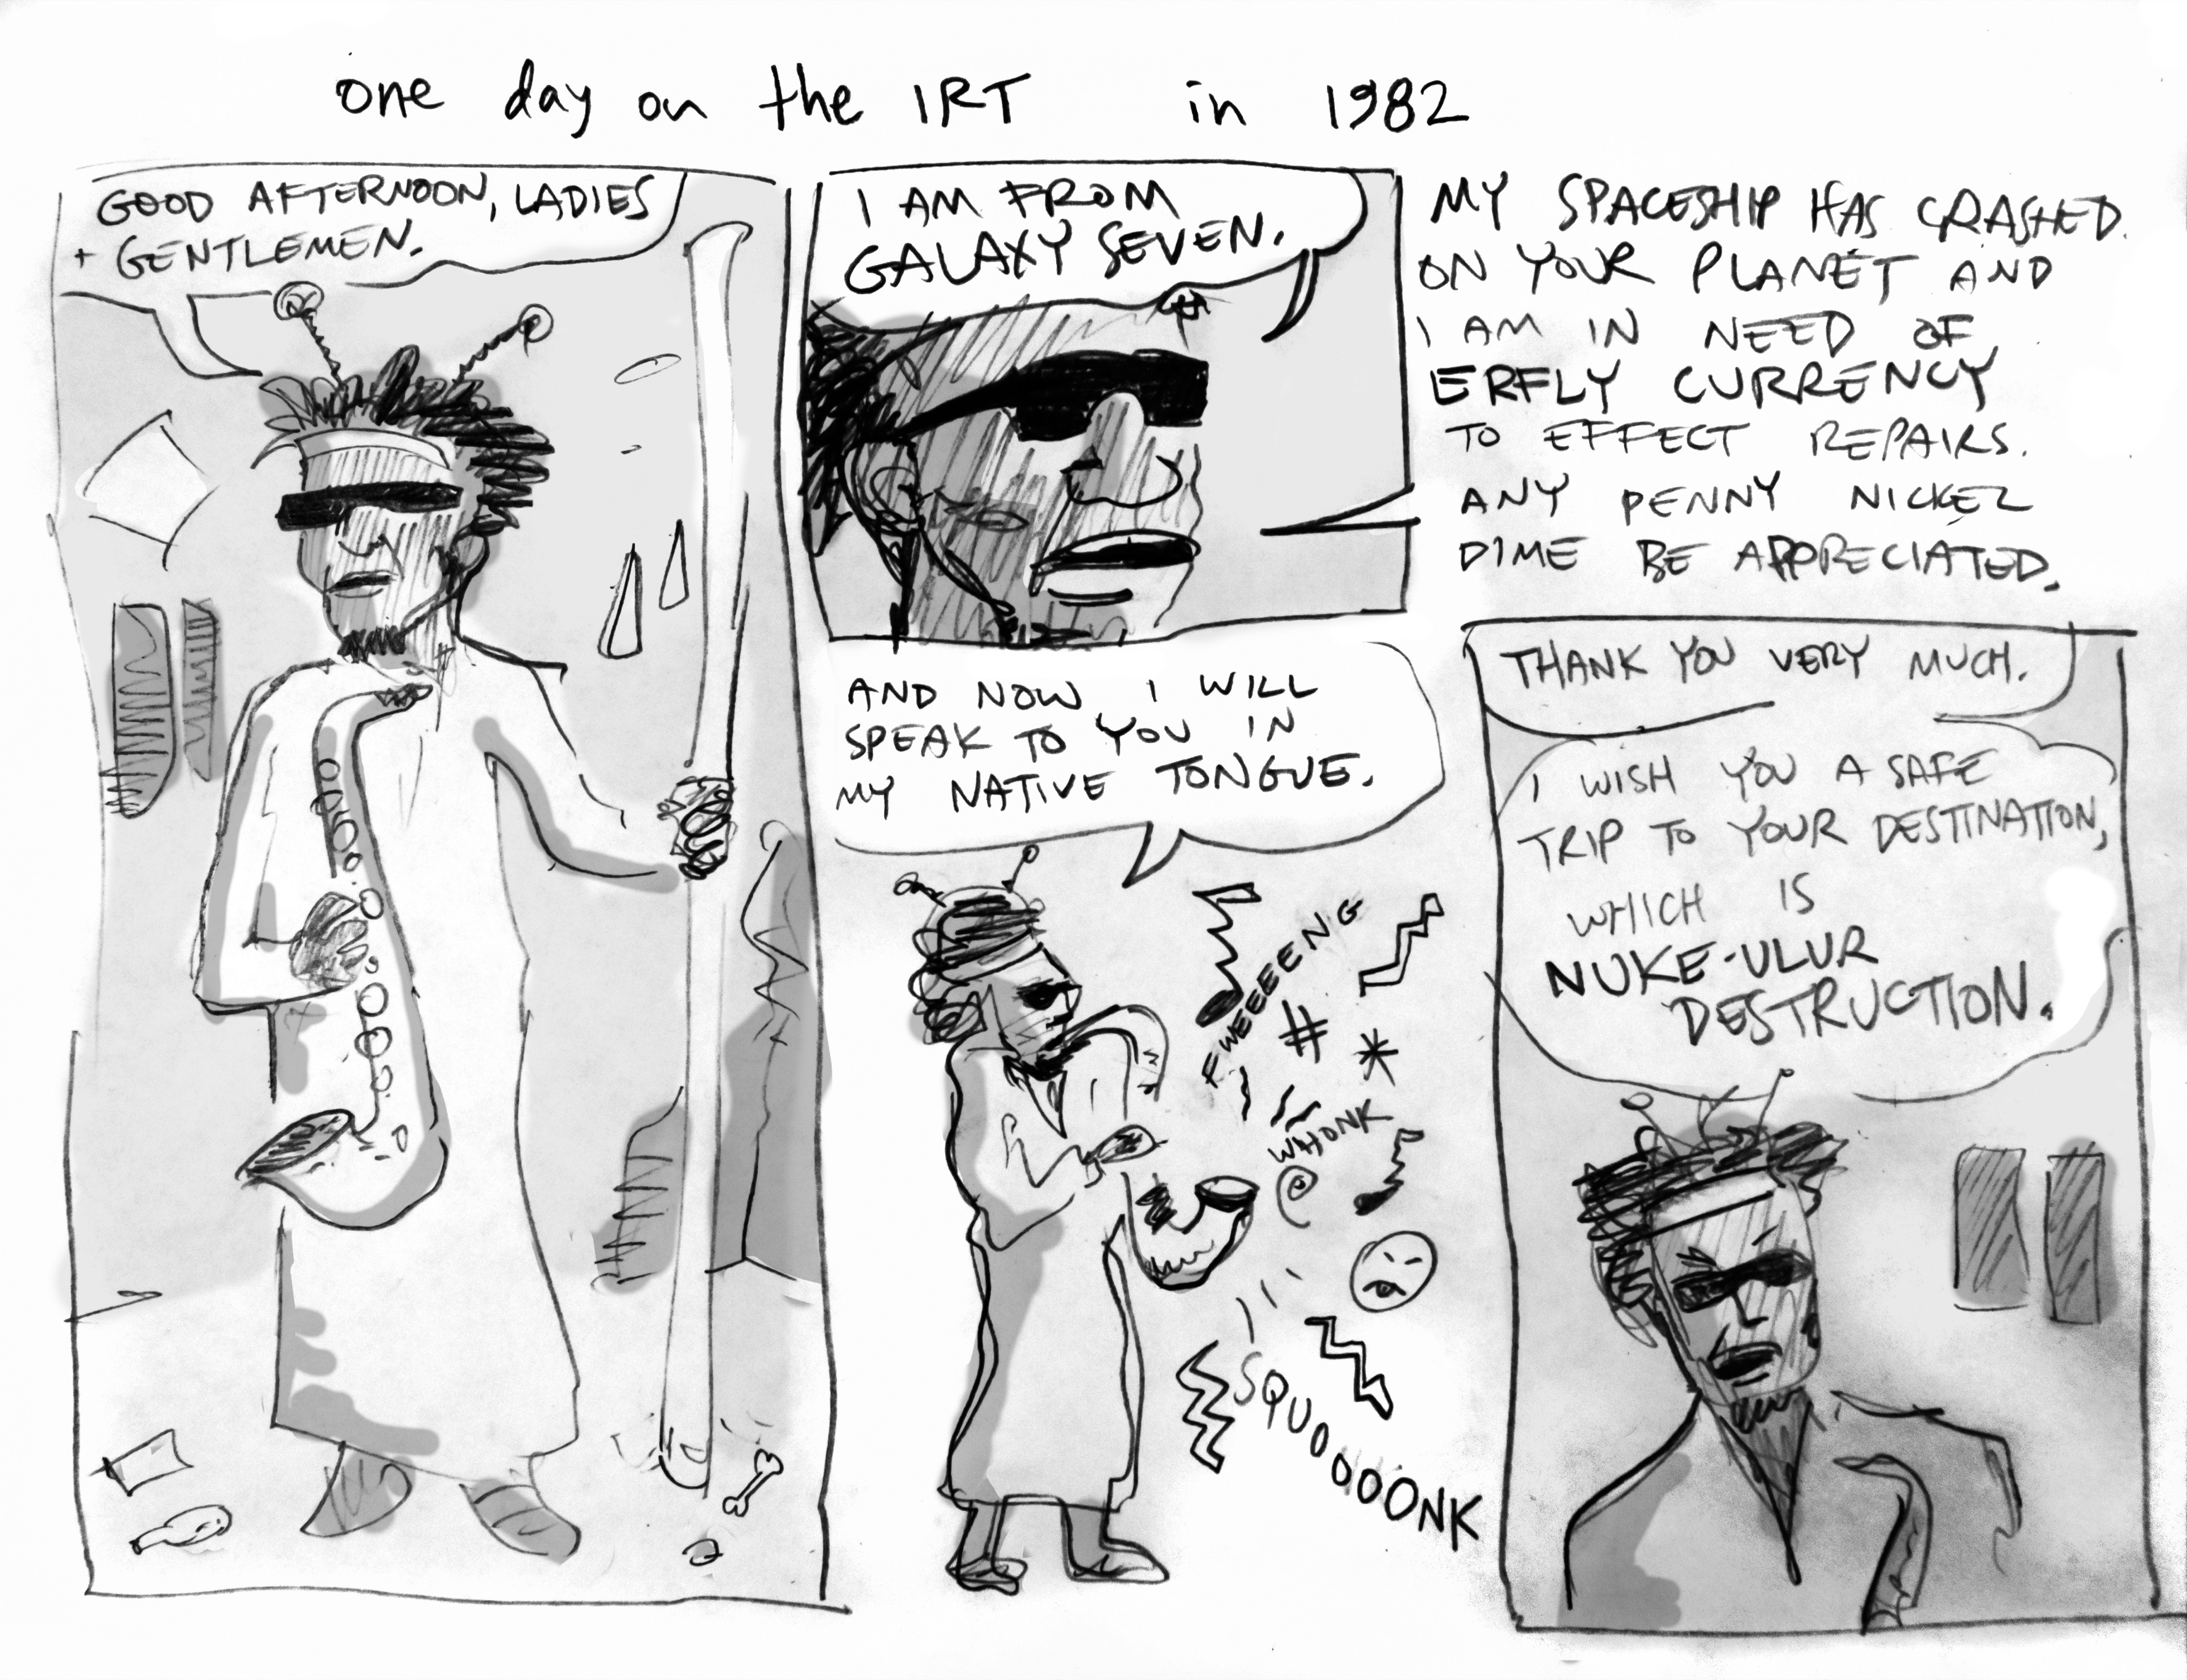 one day on the IRT in 1982
GOOD AFTERNOON, LADIES
+ GENTLEMEN.
I AM FROM
GALAXY SEVEN.
MY SPACESHIP HAS CRASHED
ON YOUR PLANET AND
I AM IN NEED OF
ERFLY CURRENCY
TO EFFECT REPAIRS.
ANY PENNY NICKEL
DIME BE APPRECIATED.
AND NOW I WILL
SPEAK TO YOU IN
MY NATIVE TONGUE.
FWEEEENG
# *
WHONK
@
SQUOOOOONK
THANK YOU VERY MUCH.
I WISH YOU A SAFE
TRIP TO YOUR DESTINATION,
WHICH IS
NUKE-ULUR
DESTRUCTION.